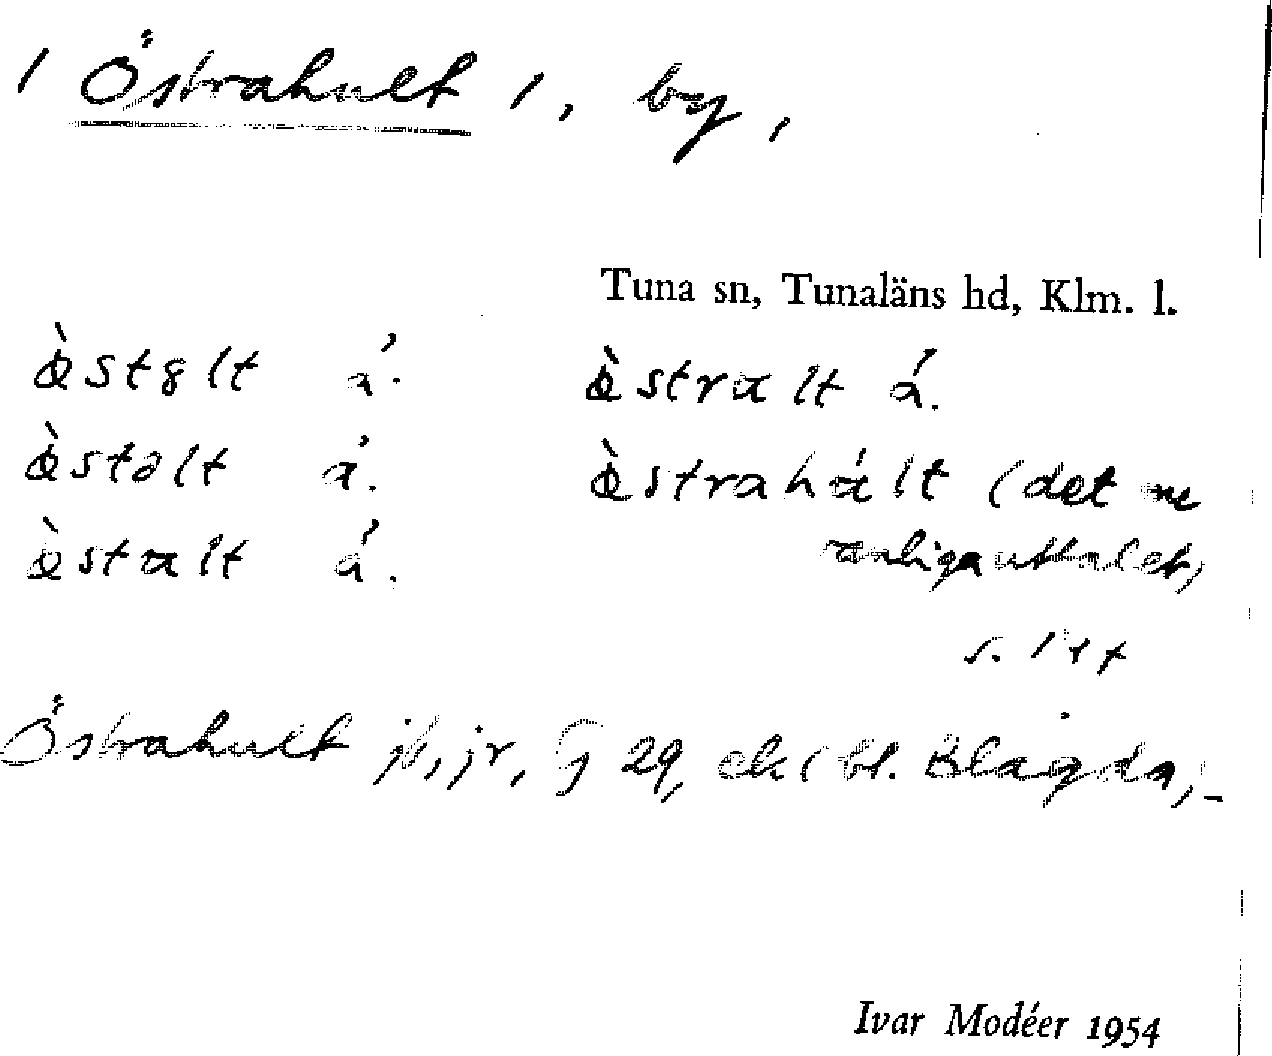 / Östrahult /, by,
Tuna sn, Tunaläns hd, Klm. l.
œ̀stȣlt á. œ̀stralt á.
œ̀stɔlt á. œ̀strahált (det me
œ̀stalt á. uttalet)
Östrahult jb, jr, G 29, ek bl. Blågda,
Ivar Modéer 1954